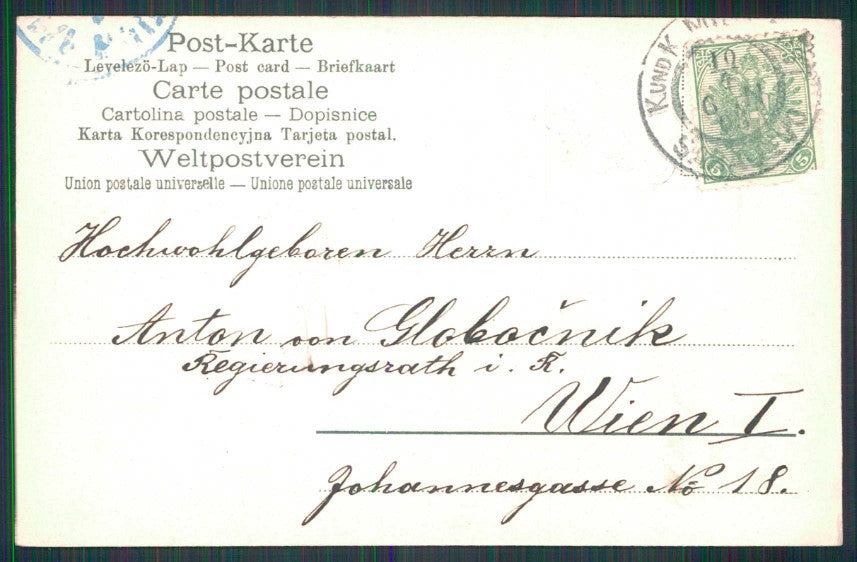 Post-Karte
Levelező-Lap — Post card — Briefkaart
Carte postale
Cartolina postale — Dopisnice
Karta Korespondencyjna Tarjeta postal.
Weltpostverein
Union postale universelle — Unione postale universale
K UND K MIL
5 5
Hochwohlgeboren Herrn
Anton von Globočnik
Regierungsrath i. R.
Wien I.
Johannesgasse No 18.